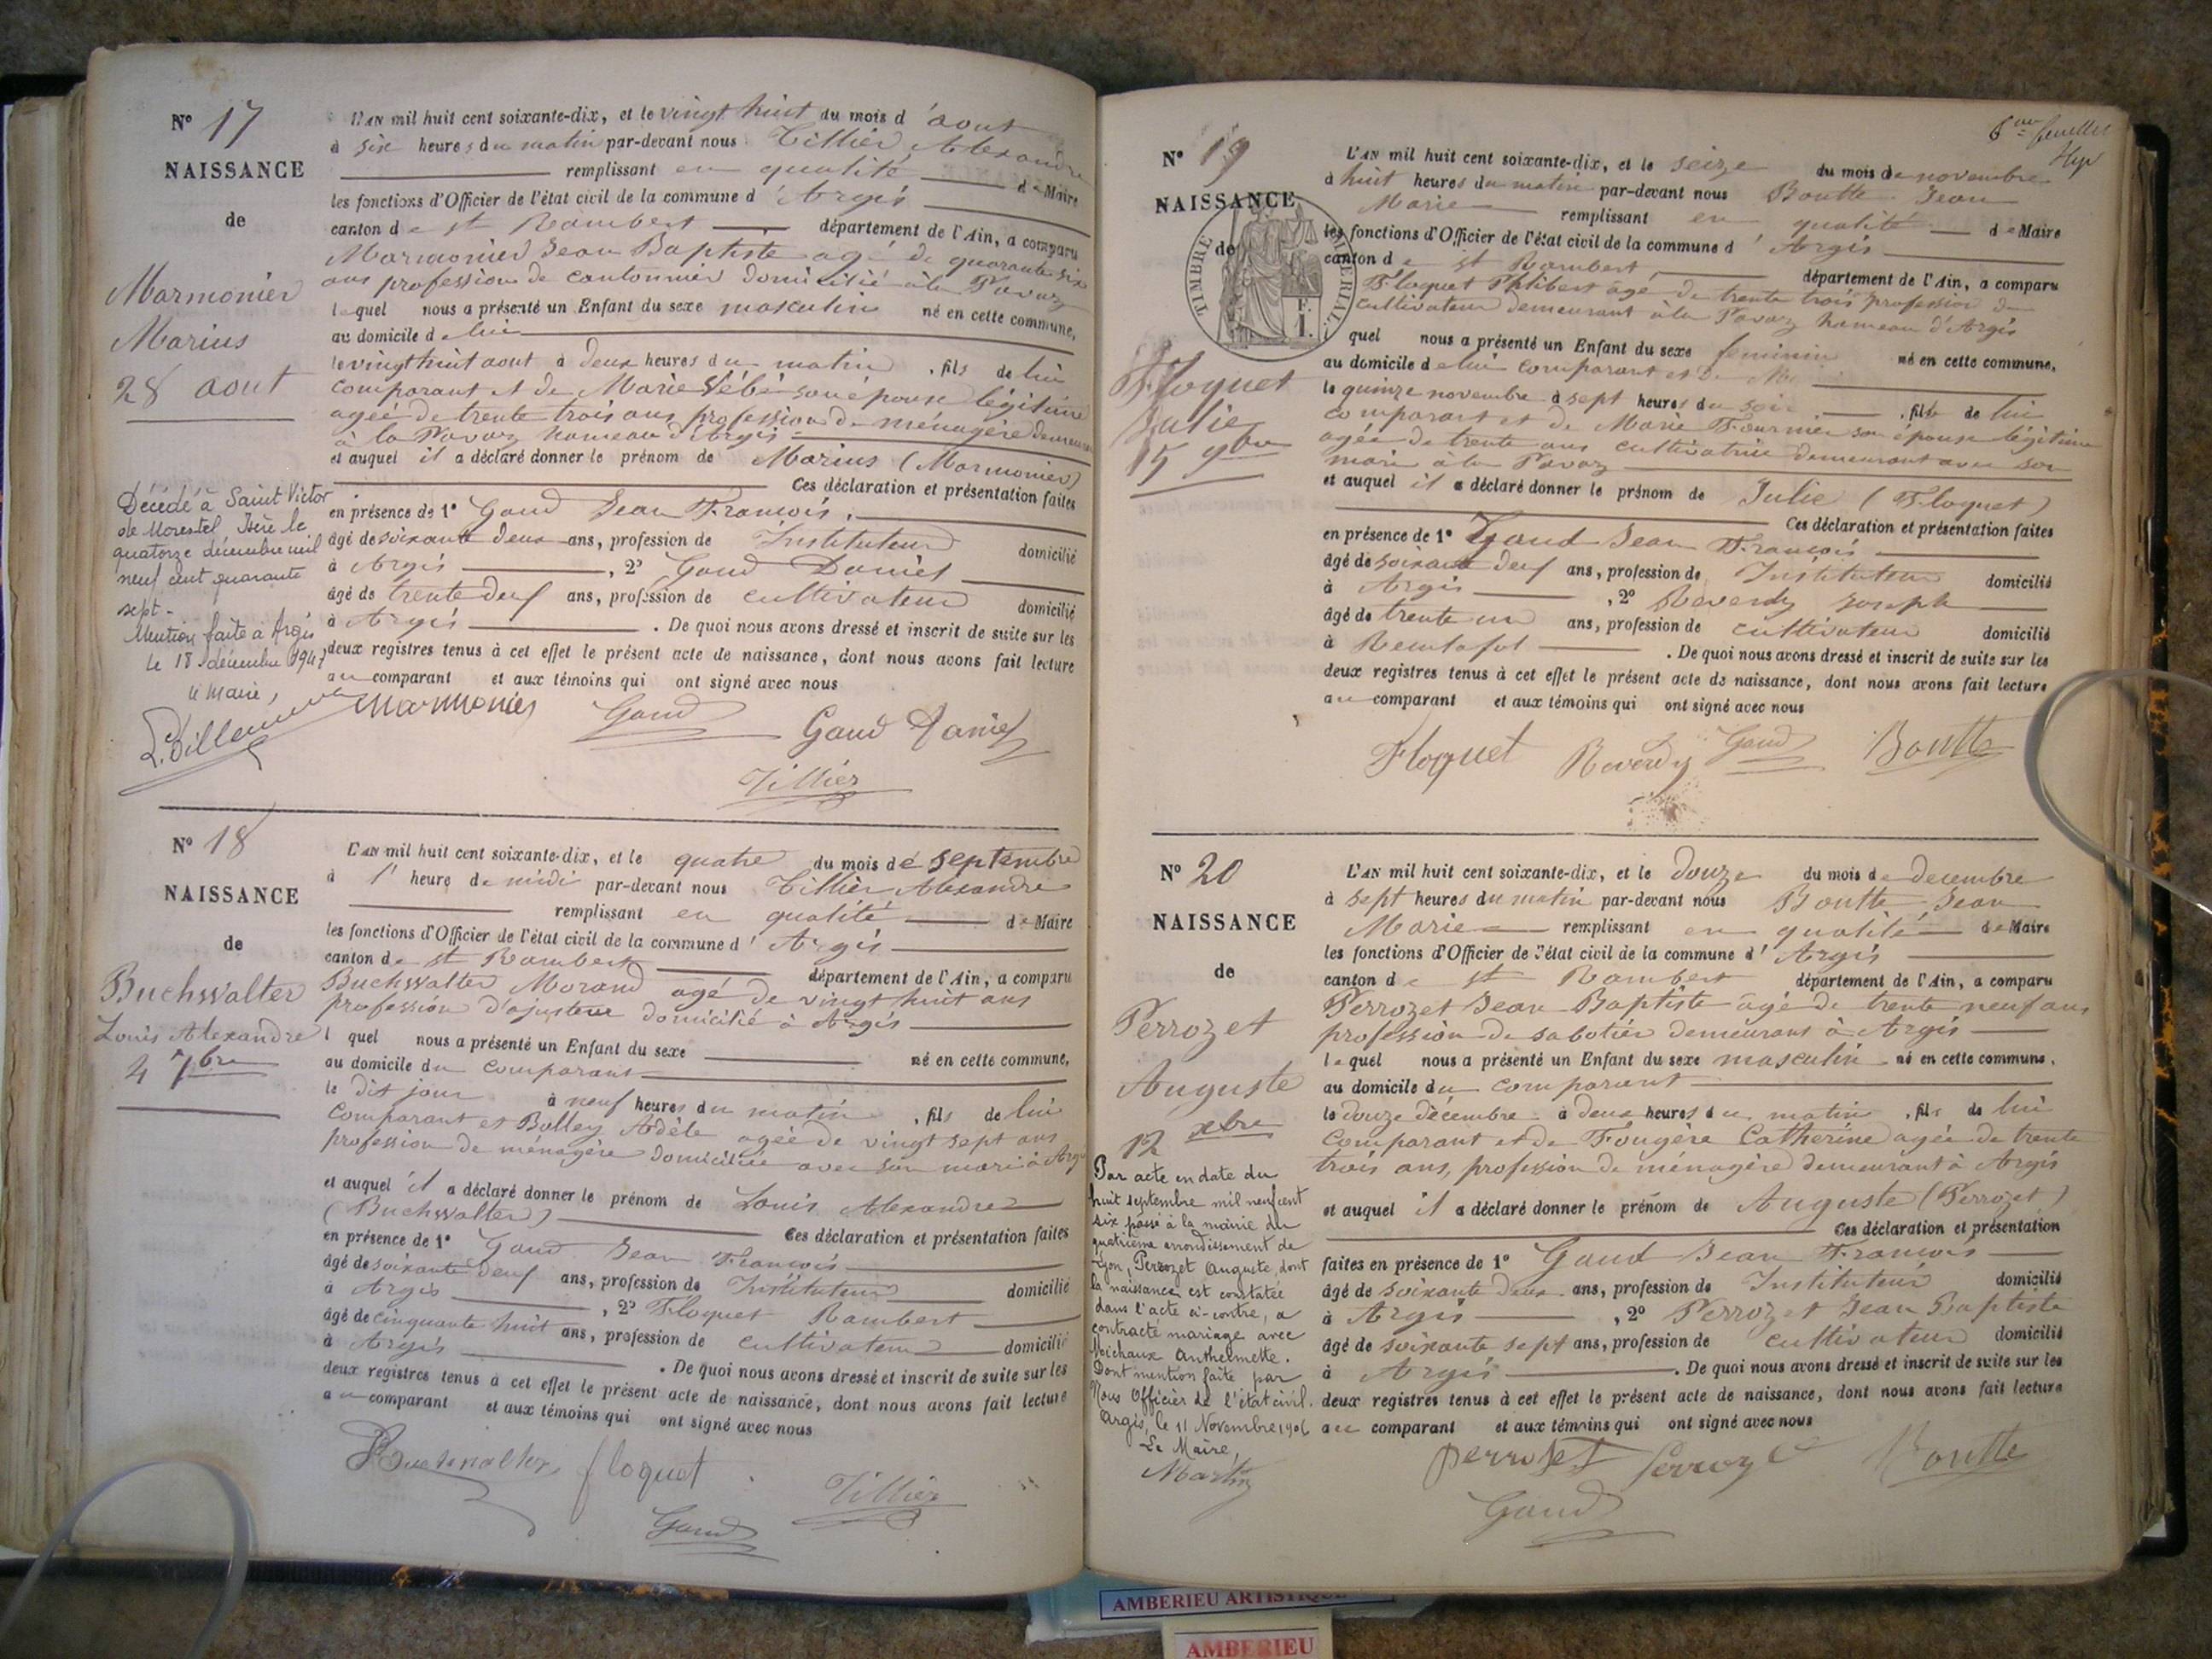 N° 17
NAISSANCE
de
Marmonier
Marius
28 aout
L'AN mil huit cent soixante-dix, et le vingt huit du mois d'aout
à six heures du matin par-devant nous Tillier Alexandre
remplissant en qualité de Maire
les fonctions d'Officier de l'état civil de la commune d'Argis
canton de st Rambert département de l'Ain, a comparu
Marmonier Jean Baptiste agé de quarante six
ans profession de cantonnier domicilié à la Pavaz
lequel nous a présenté un Enfant du sexe masculin né en cette commune,
au domicile de lui
le vingt huit aout à deux heures du matin, fils de lui
comparant et de Marie Bébé son épouse légitime
agée de trente trois ans profession de ménagère
à la Pavaz hameau d'Argis
et auquel il a déclaré donner le prénom de Marius (Marmonier)
Ces déclaration et présentation faites
en présence de 1° Gaud Jean François
âgé de soixante deux ans, profession de Instituteur domicilié
à Argis, 2° Gaud Daniel
âgé de trente deux ans, profession de cultivateur domicilié
à Argis. De quoi nous avons dressé et inscrit de suite sur les
deux registres tenus à cet effet le présent acte de naissance, dont nous avons fait lecture
au comparant et aux témoins qui ont signé avec nous
Décédé à Saint Victor
de Morestel Isère le
quatorze décembre mil
neuf cent quarante
sept.
Mention faite à Argis
le 18 décembre 1947
le Maire,
Marmonier Gaud Gaud Daniel
Tillier
N° 18
NAISSANCE
de
Buchwalter
Louis Alexandre
4 7bre
L'AN mil huit cent soixante-dix, et le quatre du mois de septembre
à 1 heure de midi par-devant nous Tillier Alexandre
remplissant en qualité de Maire
les fonctions d'Officier de l'état civil de la commune d'Argis
canton de st Rambert département de l'Ain, a comparu
Buchwalter Morand agé de vingt huit ans
profession d'ajusteur domicilié à Argis
l quel nous a présenté un Enfant du sexe né en cette commune,
au domicile du comparant
le dit jour à neuf heures du matin, fils de lui
comparant et Bolley Adèle agée de vingt sept ans
profession de ménagère domiciliée avec son mari à Argis
et auquel il a déclaré donner le prénom de Louis Alexandre
(Buchwalter)
Ces déclaration et présentation faites
en présence de 1° Gaud Jean François
âgé de soixante deux ans, profession de Instituteur domicilié
à Argis, 2° Floquet Rambert
âgé de cinquante huit ans, profession de cultivateur domicilié
à Argis. De quoi nous avons dressé et inscrit de suite sur les
deux registres tenus à cet effet le présent acte de naissance, dont nous avons fait lecture
au comparant et aux témoins qui ont signé avec nous
Buchwalter floquet Tillier
Gaud
6me feuillet
N° 19
NAISSANCE
de
TIMBRE IMPERIAL
F.
1.
Floquet
Julie
15 9bre
L'AN mil huit cent soixante-dix, et le seize du mois de novembre
à huit heures du matin par-devant nous Boutte Jean
Marie remplissant en qualité de Maire
les fonctions d'Officier de l'état civil de la commune d'Argis
canton de st Rambert département de l'Ain, a comparu
Floquet Philibert âgé de trente trois profession de
cultivateur demeurant à la Pavaz hameau d'Argis
quel nous a présenté un Enfant du sexe feminin né en cette commune,
au domicile de lui comparant et de
le quinze novembre à sept heures du soir, fille de lui
comparant et de Marie Fournier son épouse légitime
agée de trente ans cultivatrice demeurant avec son
mari à la Pavaz
et auquel il a déclaré donner le prénom de Julie (Floquet)
Ces déclaration et présentation faites
en présence de 1° Gaud Jean François
âgé de soixante deux ans, profession de Instituteur domicilié
à Argis, 2° Reverdy Joseph
âgé de trente un ans, profession de cultivateur domicilié
à. De quoi nous avons dressé et inscrit de suite sur les
deux registres tenus à cet effet le présent acte de naissance, dont nous avons fait lecture
au comparant et aux témoins qui ont signé avec nous
Floquet Reverdy Gaud Boutte
N° 20
NAISSANCE
de
Perrozet
Auguste
12 xbre
L'AN mil huit cent soixante-dix, et le douze du mois de decembre
à sept heures du matin par-devant nous Boutte Jean
Marie remplissant en qualité de Maire
les fonctions d'Officier de l'état civil de la commune d'Argis
canton de st Rambert département de l'Ain, a comparu
Perrozet Jean Baptiste agé de trente neuf ans
profession de sabotier demeurant à Argis
lequel nous a présenté un Enfant du sexe masculin né en cette commune,
au domicile du comparant
le douze décembre à deux heures du matin, fils de lui
comparant et de Fougère Catherine agée de trente
trois ans, profession de ménagère demeurant à Argis
et auquel il a déclaré donner le prénom de Auguste (Perrozet)
Ces déclaration et présentation
faites en présence de 1° Gaud Jean François
âgé de soixante deux ans, profession de Instituteur domicilié
à Argis, 2° Perrozet Jean Baptiste
âgé de soixante sept ans, profession de cultivateur domicilié
à Argis. De quoi nous avons dressé et inscrit de suite sur les
deux registres tenus à cet effet le présent acte de naissance, dont nous avons fait lecture
au comparant et aux témoins qui ont signé avec nous
Par acte en date du
huit septembre mil neuf cent
six passé à la mairie du
quatrième arrondissement de
Lyon, Perrozet Auguste, dont
la naissance est constatée
dans l'acte ci-contre, a
contracté mariage avec
Michaux Anthelmette.
Dont mention faite par
Nous Officier de l'état civil.
Argis, le 11 Novembre 1906
Le Maire,
Martin
perrozet Perrozet Boutte
Gaud
AMBERIEU ARTISTIQUE
AMBERIEU